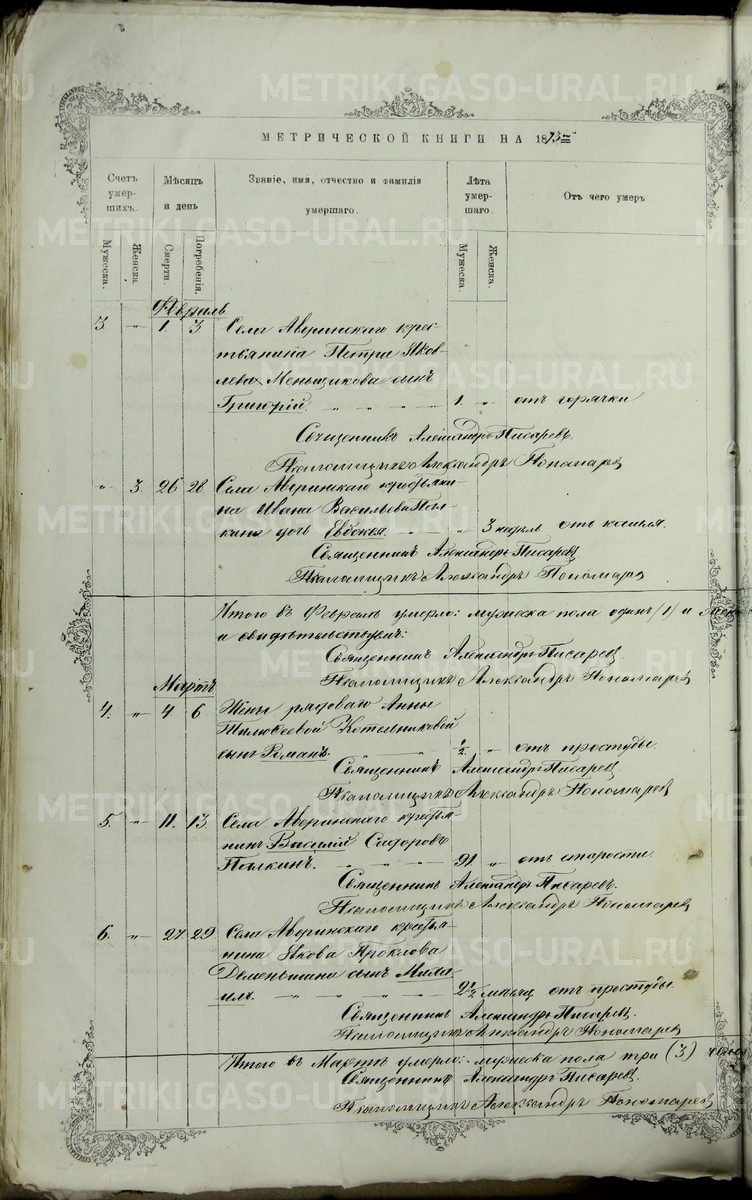 METRIKI.GASO-URAL.RU
МЕТРИЧЕСКОЙ КНИГИ НА 1873
Счетъ умер-шихъ.
Мѣсяцъ и день
Званіе, имя, отчество и фамилія умершаго.
Лѣта умер-шаго.
Отъ чего умеръ.
Мужеска.
Женска.
Смерти.
Погребенія.
Мужеска.
Женска.
Февраль
3 " 1. 3. Села Аверинскаго крес-
тьянина Петра Яков-
лева Меньщикова сынъ
Григорій. 1. " отъ горячки
Священникъ Александръ Писаревъ.
Александръ Пономаревъ
" 3. 26 28 Села Аверинскаго крестьяни-
на Ивана Васильева Пал-
кина дочь Евдокея. " 3 недѣль отъ кашля.
Священникъ Александръ Писаревъ
Александръ Пономаревъ
Итого въ Февралѣ умерло: мужеска пола одинъ (1) и
и свидѣтельствуемъ:
Священникъ Александръ Писаревъ
Александръ Пономаревъ
Мартъ
4. " 4 6 Жены рядоваго Анны
Котельниковой
сынъ Романъ. 1/2. " отъ простуды.
Священникъ Александръ Писаревъ.
Александръ Пономаревъ
5. " 11. 13. Села Аверинскаго крестья-
нинъ Василій Сидоровъ
Палкинъ. 91. " отъ старости.
Священникъ Александръ Писаревъ.
Александръ Пономаревъ
6. " 27. 29 Села Аверинскаго крестья-
нина Якова Проклова
сынъ Миха-
илъ. 2 1/2 мѣсяц. отъ простуды
Священникъ Александръ Писаревъ.
Александръ Пономаревъ
Итого въ Мартѣ умерло: мужеска пола три (3)
Священникъ Александръ Писаревъ.
Александръ Пономаревъ